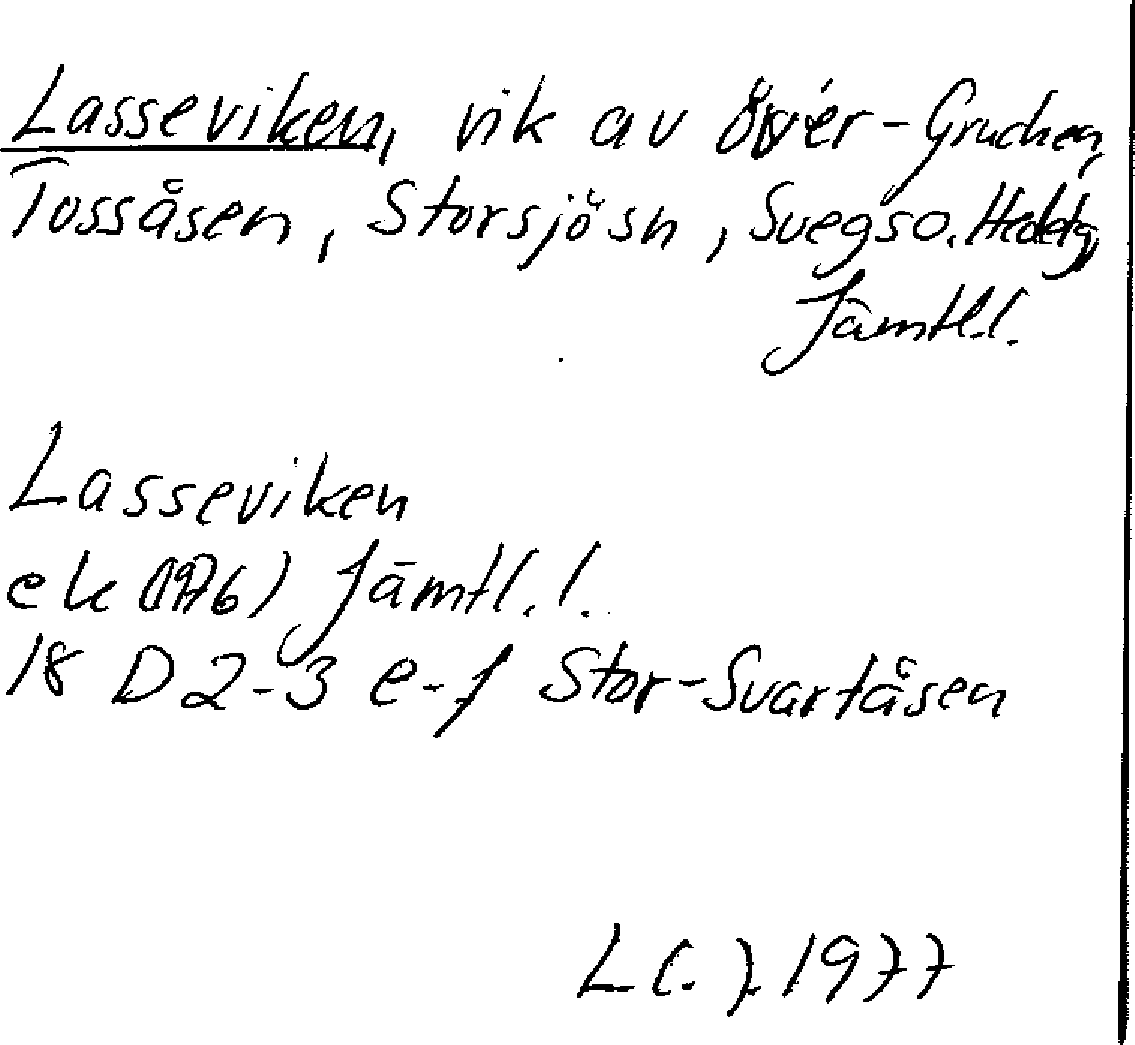 Lasseviken, vik av Över-Grucken,
Tossåsen, Storsjösn, Svegs o. Hedetg,
Jämtl.l.
Lasseviken
ek (1976) Jämtl.l.
18 D 2-3 e-f Stor-Svartåsen
L(.). 1977